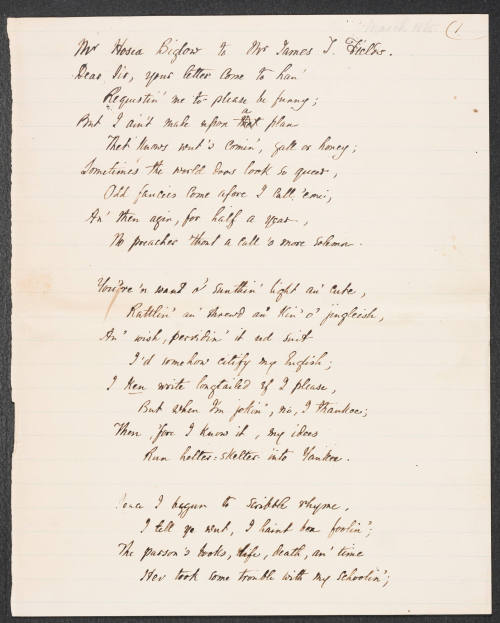 March 186
(1
Mr Hosea Biglow to Mr James T. Fields.
Dear Sir, your letter come to han'
Requestin' me to please be funny;
But I ain't made upon thet a plan
Thet knows wut's comin', gall or honey;
Sometimes the world doos look so queer,
Odd fancies come afore I call 'em;
An' then agin, for half a year,
No preacher 'thout a call 's more solemn.
You're 'n want o' sunthin' light an' cute,
Rattlin' an' shrewd an' kin' o' jingleish,
An' wish, pervidin' it 'ud suit
I'd somehow citify my English;
I ken write longtailed ef I please,
But when I'm jokin', no, I thankee;
Then, 'fore I know it, my idees
Run helter-skelter into Yankee.
Sence I begun to scribble rhyme,
I tell ye wut, I haint ben foolin';
The parson's books, life, death, an' time
Hev took some trouble with my schoolin';